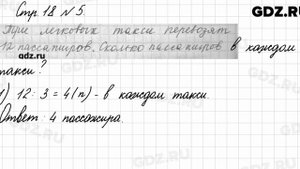 Стр. 18 № 5.
GDZ.RU
Три легковых такси перевозят
12 пассажиров. Сколько пассажиров в каждом
такси?
1) 12 : 3 = 4 (п) - в каждом такси
Ответ: 4 пассажира.